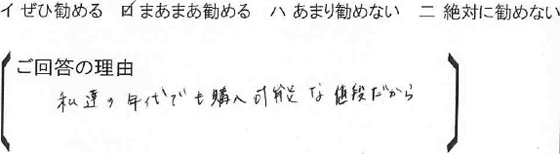 イ ぜひ勧める ロ まあまあ勧める ハ あまり勧めない ニ 絶対に勧めない
ご回答の理由
私達の年代でも購入可能な値段だから